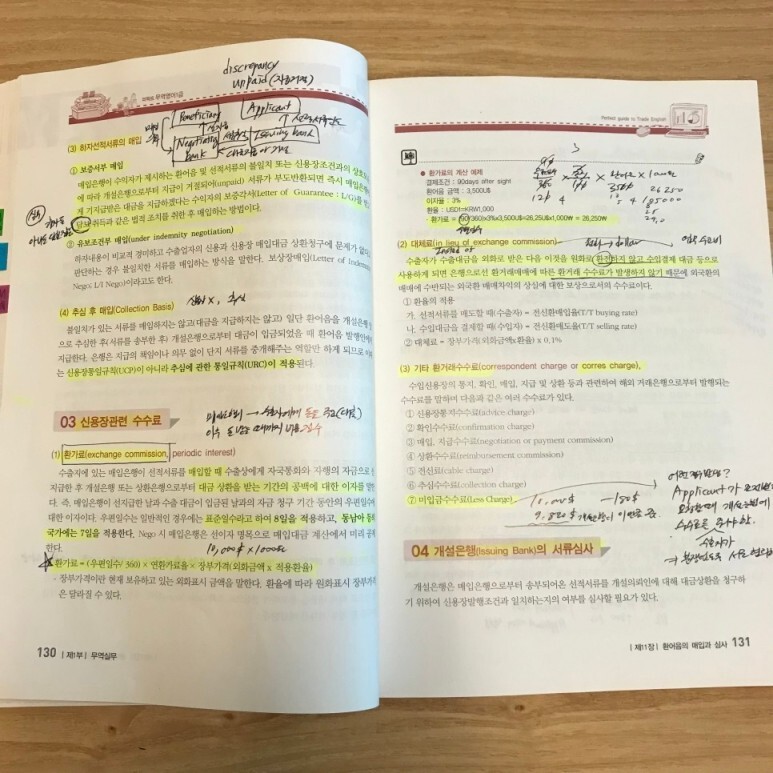 discrepancy
unpaid(
Beneficiary
Applicant
Negotiating bank
Issuing bank
(3) 하자선적서류의 매입
① 보증서부 매입
매입은행이 수익자가 제시하는 환어음 및 선적서류의 불일치 또는 신용장조건과의 상호
에 따라 개설은행으로부터 지급이 거절되어(unpaid) 서류가 부도반환되면 즉시 매입은행
게 기지급받은 대금을 지급하겠다는 수익자의 보증각서(Letter of Guarantee : L/G)를
담보취득과 같은 법적 조치를 취한 후 매입하는 방법이다.
② 유보조건부 매입(under indemnity negotiation)
하자내용이 비교적 경미하고 수출업자의 신용과 신용장 매입대금 상환청구에 문제가 없다
판단하는 경우 불일치한 서류를 매입하는 방식을 말한다. 보상장매입(Letter of Indemn
Nego: L/I Nego)이라고도 한다.
(4) 추심 후 매입(Collection Basis)
불일치가 있는 서류를 매입하지는 않고(대금을 지급하지는 않고) 일단 환어음을 개설은행
으로 추심한 후(서류를 송부한 후) 개설은행으로부터 대금이 입금되었을 때 환어음 발행인에
지급한다. 은행은 지급의 책임이나 의무 없이 단지 서류를 중개해주는 역할만 하게 되므로
는 신용장통일규칙(UCP)이 아니라 추심에 관한 통일규칙(URC)이 적용된다.
03 신용장관련 수수료
(1) 환가료(exchange commission, periodic interest)
수출지에 있는 매입은행이 선적서류를 매입할 때 수출상에게 자국통화와 자행의 자금으로
지급한 후 개설은행 또는 상환은행으로부터 대금 상환을 받는 기간의 공백에 대한 이자를 말
다. 즉, 매입은행이 선지급한 날과 수출 대금이 입금된 날과의 자금 청구 기간 동안의 우편일수에
대한 이자이다. 우편일수는 일반적인 경우에는 표준일수라고 하여 8일을 적용하고, 동남아 등
국가에는 7일을 적용한다. Nego 시 매입은행은 선이자 명목으로 매입대금 계산에서 미리 공제
한다.
10,000$ × 1000원
환가료=(우편일수/ 360) × 연환가료율 × 장부가격(외화금액 x 적용환율)
· 장부가격이란 현재 보유하고 있는 외화표시 금액을 말한다. 환율에 따라 원화표시 장부가격
은 달라질 수 있다.
130 | 제1부 | 무역실무
Perfect guide to Trade English
● 환가료의 계산 예제
결제조건 : 90days after sight
환어음 금액 : 3,500U$
이자율 : 3%
환율 : USD1=KRW1,000
환가료 = 90/360x3%x3,500U$=26.25U$x1,000₩ = 26,250₩
(2) 대체료(in lieu of exchange commission)
수출자가 수출대금을 외화로 받은 다음 이것을 원화로 환전하지 않고 수입결제 대금 등으로
사용하게 되면 은행으로선 환거래매매에 따른 환거래 수수료가 발생하지 않기 때문에 외국환의
매매에 수반되는 외국환 매매차익의 상실에 대한 보상으로서의 수수료이다.
① 환율의 적용
가. 선적서류를 매도할 때(수출자) = 전신환매입율(T/T buying rate)
나. 수입대금을 결제할 때(수입자) = 전신환매도율(T/T selling rate)
② 대체료 = 장부가격(외화금액x환율) x 0.1%
(3) 기타 환거래수수료(correspondent charge or corres charge),
수입신용장의 통지, 확인, 매입, 지급 및 상환 등과 관련하여 해외 거래은행으로부터 발행되는
수수료를 말하며 다음과 같은 여러 수수료가 있다.
① 신용장통지수수료(advice charge)
② 확인수수료(confirmation charge)
③ 매입, 지급수수료(negotiation or payment commission)
④ 상환수수료(reimbursement commission)
⑤ 전신료(cable charge)
⑥ 추심수수료(collection charge)
⑦ 미입금수수료(Less Charge)
10,000$ -150$
Applicant가
04 개설은행(Issuing Bank)의 서류심사
개설은행은 매입은행으로부터 송부되어온 선적서류를 개설의뢰인에 대해 대금상환을 청구하
기 위하여 신용장발행조건과 일치하는지의 여부를 심사할 필요가 있다.
| 제11장 | 환어음의 매입과 심사 131